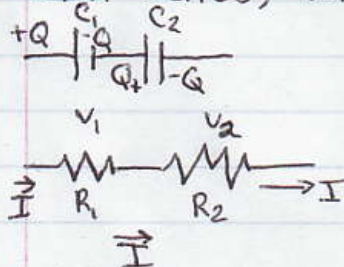 C₁ C₂
+Q -Q Q+ -Q
V₁ V₂
I R₁ R₂ I
I